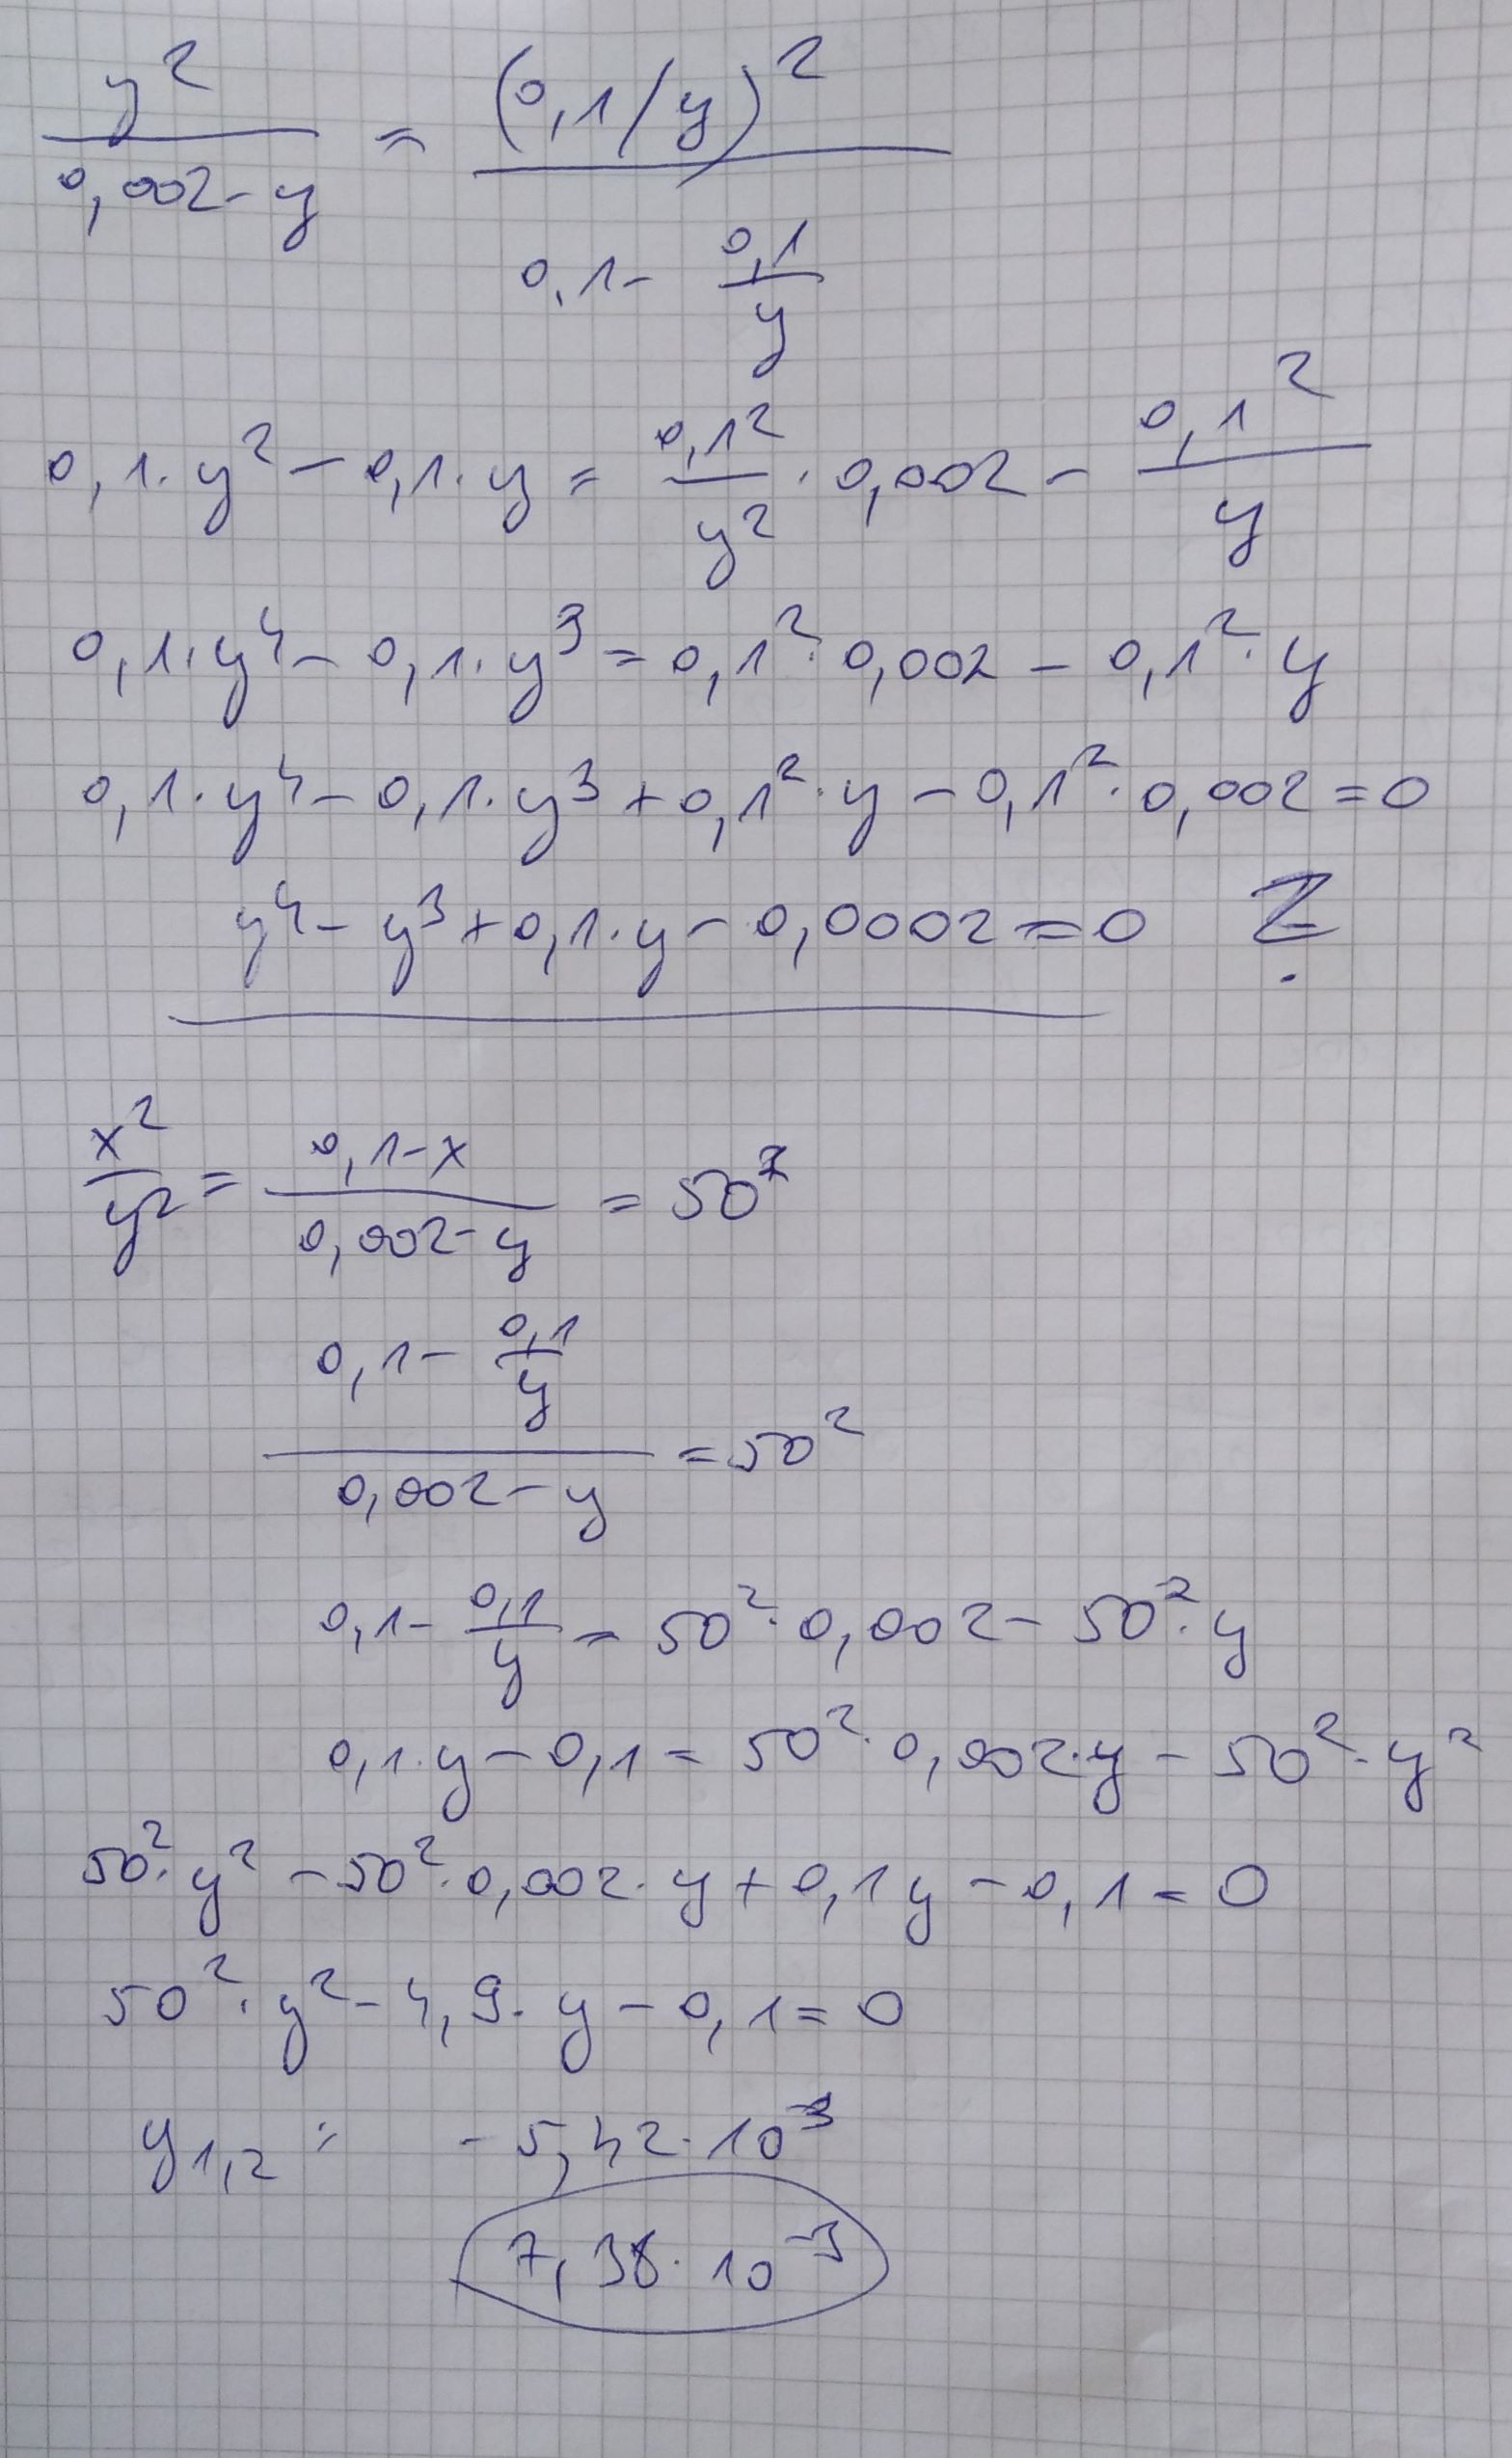 y² / (0,002-y) = (0,1/y)² / (0,1 - 0,1/y)
0,1·y² - 0,1·y = 0,1²/y² · 0,002 - 0,1²/y
0,1·y⁴ - 0,1·y³ = 0,1²·0,002 - 0,1²·y
0,1·y⁴ - 0,1·y³ + 0,1²·y - 0,1²·0,002 = 0
y⁴ - y³ + 0,1·y - 0,0002 = 0
x²/y² = (0,1-x) / (0,002-y) = 50²
(0,1 - 0,1/y) / (0,002-y) = 50²
0,1 - 0,1/y = 50²·0,002 - 50²·y
0,1·y - 0,1 = 50²·0,002·y - 50²·y²
50²·y² - 50²·0,002·y + 0,1y - 0,1 = 0
50²·y² - 4,9·y - 0,1 = 0
y1,2 = -5,42·10⁻³
7,38·10⁻³